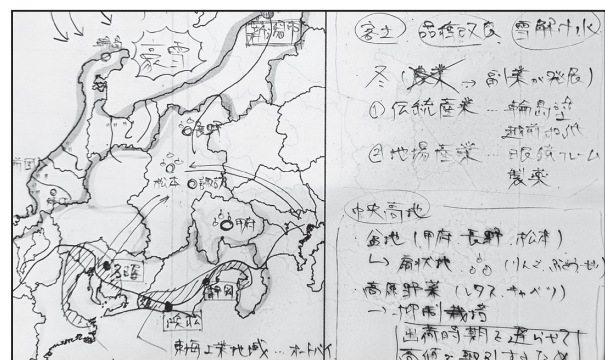 輪島
豪雪
長野
松本
諏訪
甲府
静岡
浜松
東海工業地域…オートバイ
客土 品種改良 雪解け水
冬(農業→副業が発展)
①伝統産業…輪島塗
越前和紙
②地場産業…眼鏡フレーム
製薬
中央高地
・盆地(甲府、長野、松本)
↳扇状地 (りんご、ぶどう、もも)
・高原野菜(レタス、キャベツ)
→抑制栽培
出荷時期を遅らせて